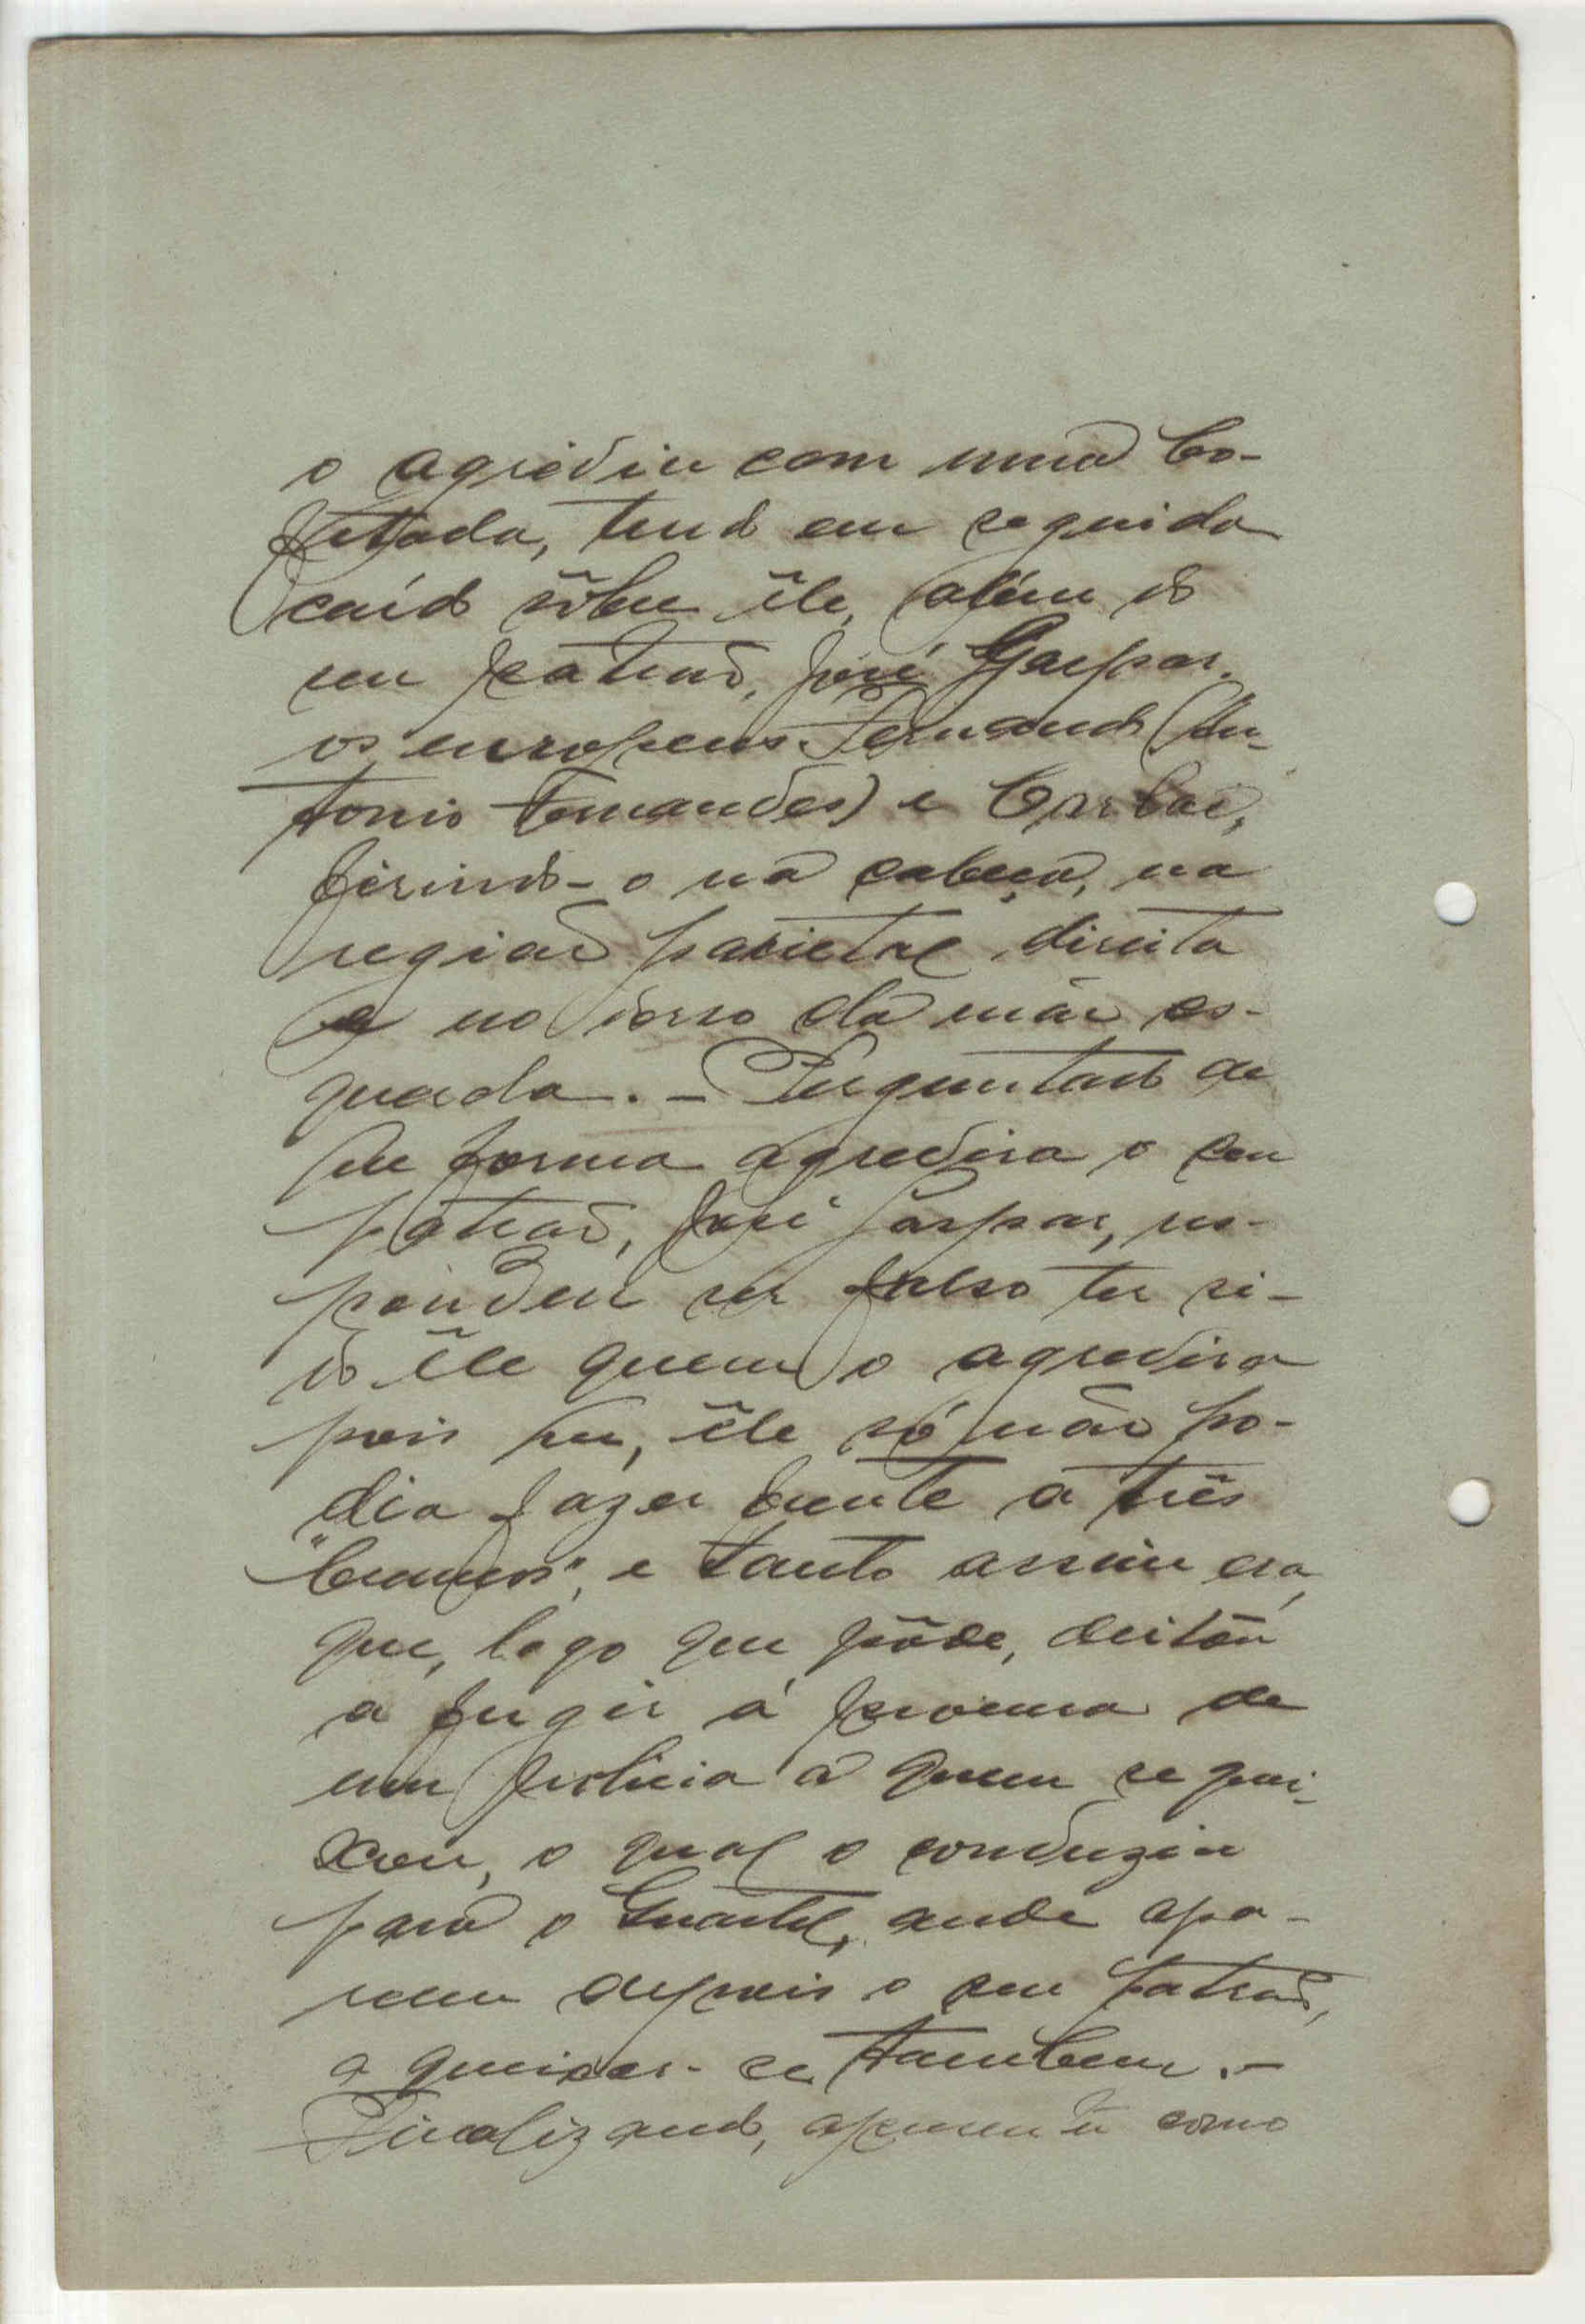 o agrediu com uma bo-
fetada, tendo em seguida
caído sôbre êle, além do
seu patrão, José Gaspar,
os europeus Fernando (An-
tonio Fernandes) e
ferindo-o na cabeça, na
região parietal direita
e no dorso da mão es-
querda. - Perguntado de
que forma agredira o seu
patrão, José Gaspar, res-
pondeu ser falso ter si-
do êle quem o agredira
pois que, êle só não po-
dia fazer frente a três
"brancos", e tanto assim era,
que, logo que pôde, deitou
a fugir á procura de
um policia a quem se quei-
xou, o qual o conduziu
para o Quartel, onde apa-
receu depois o seu patrão,
a queixar-se tambem. -
Finalizando, apresenta como